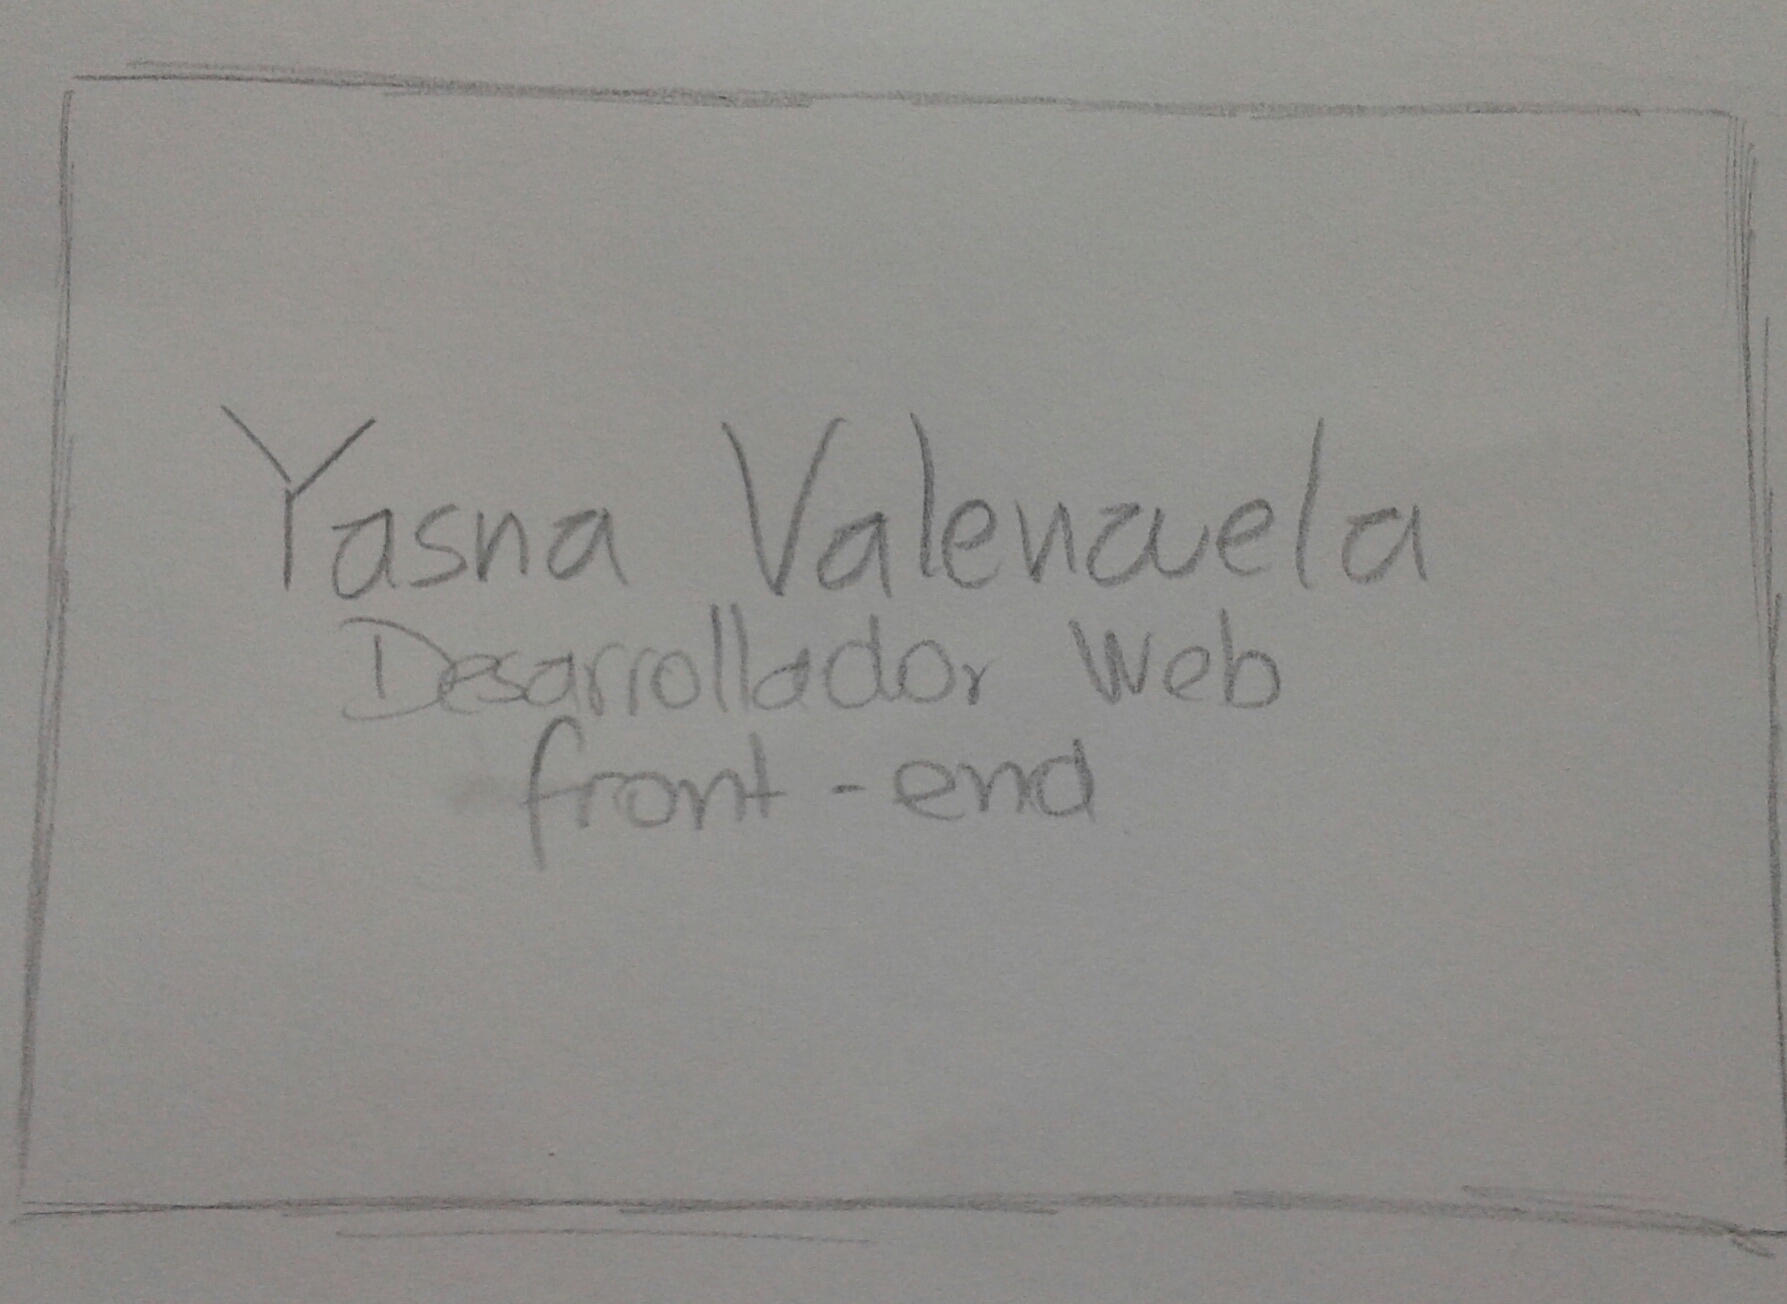 Yasna Valenzuela
Desarrollador Web
front-end